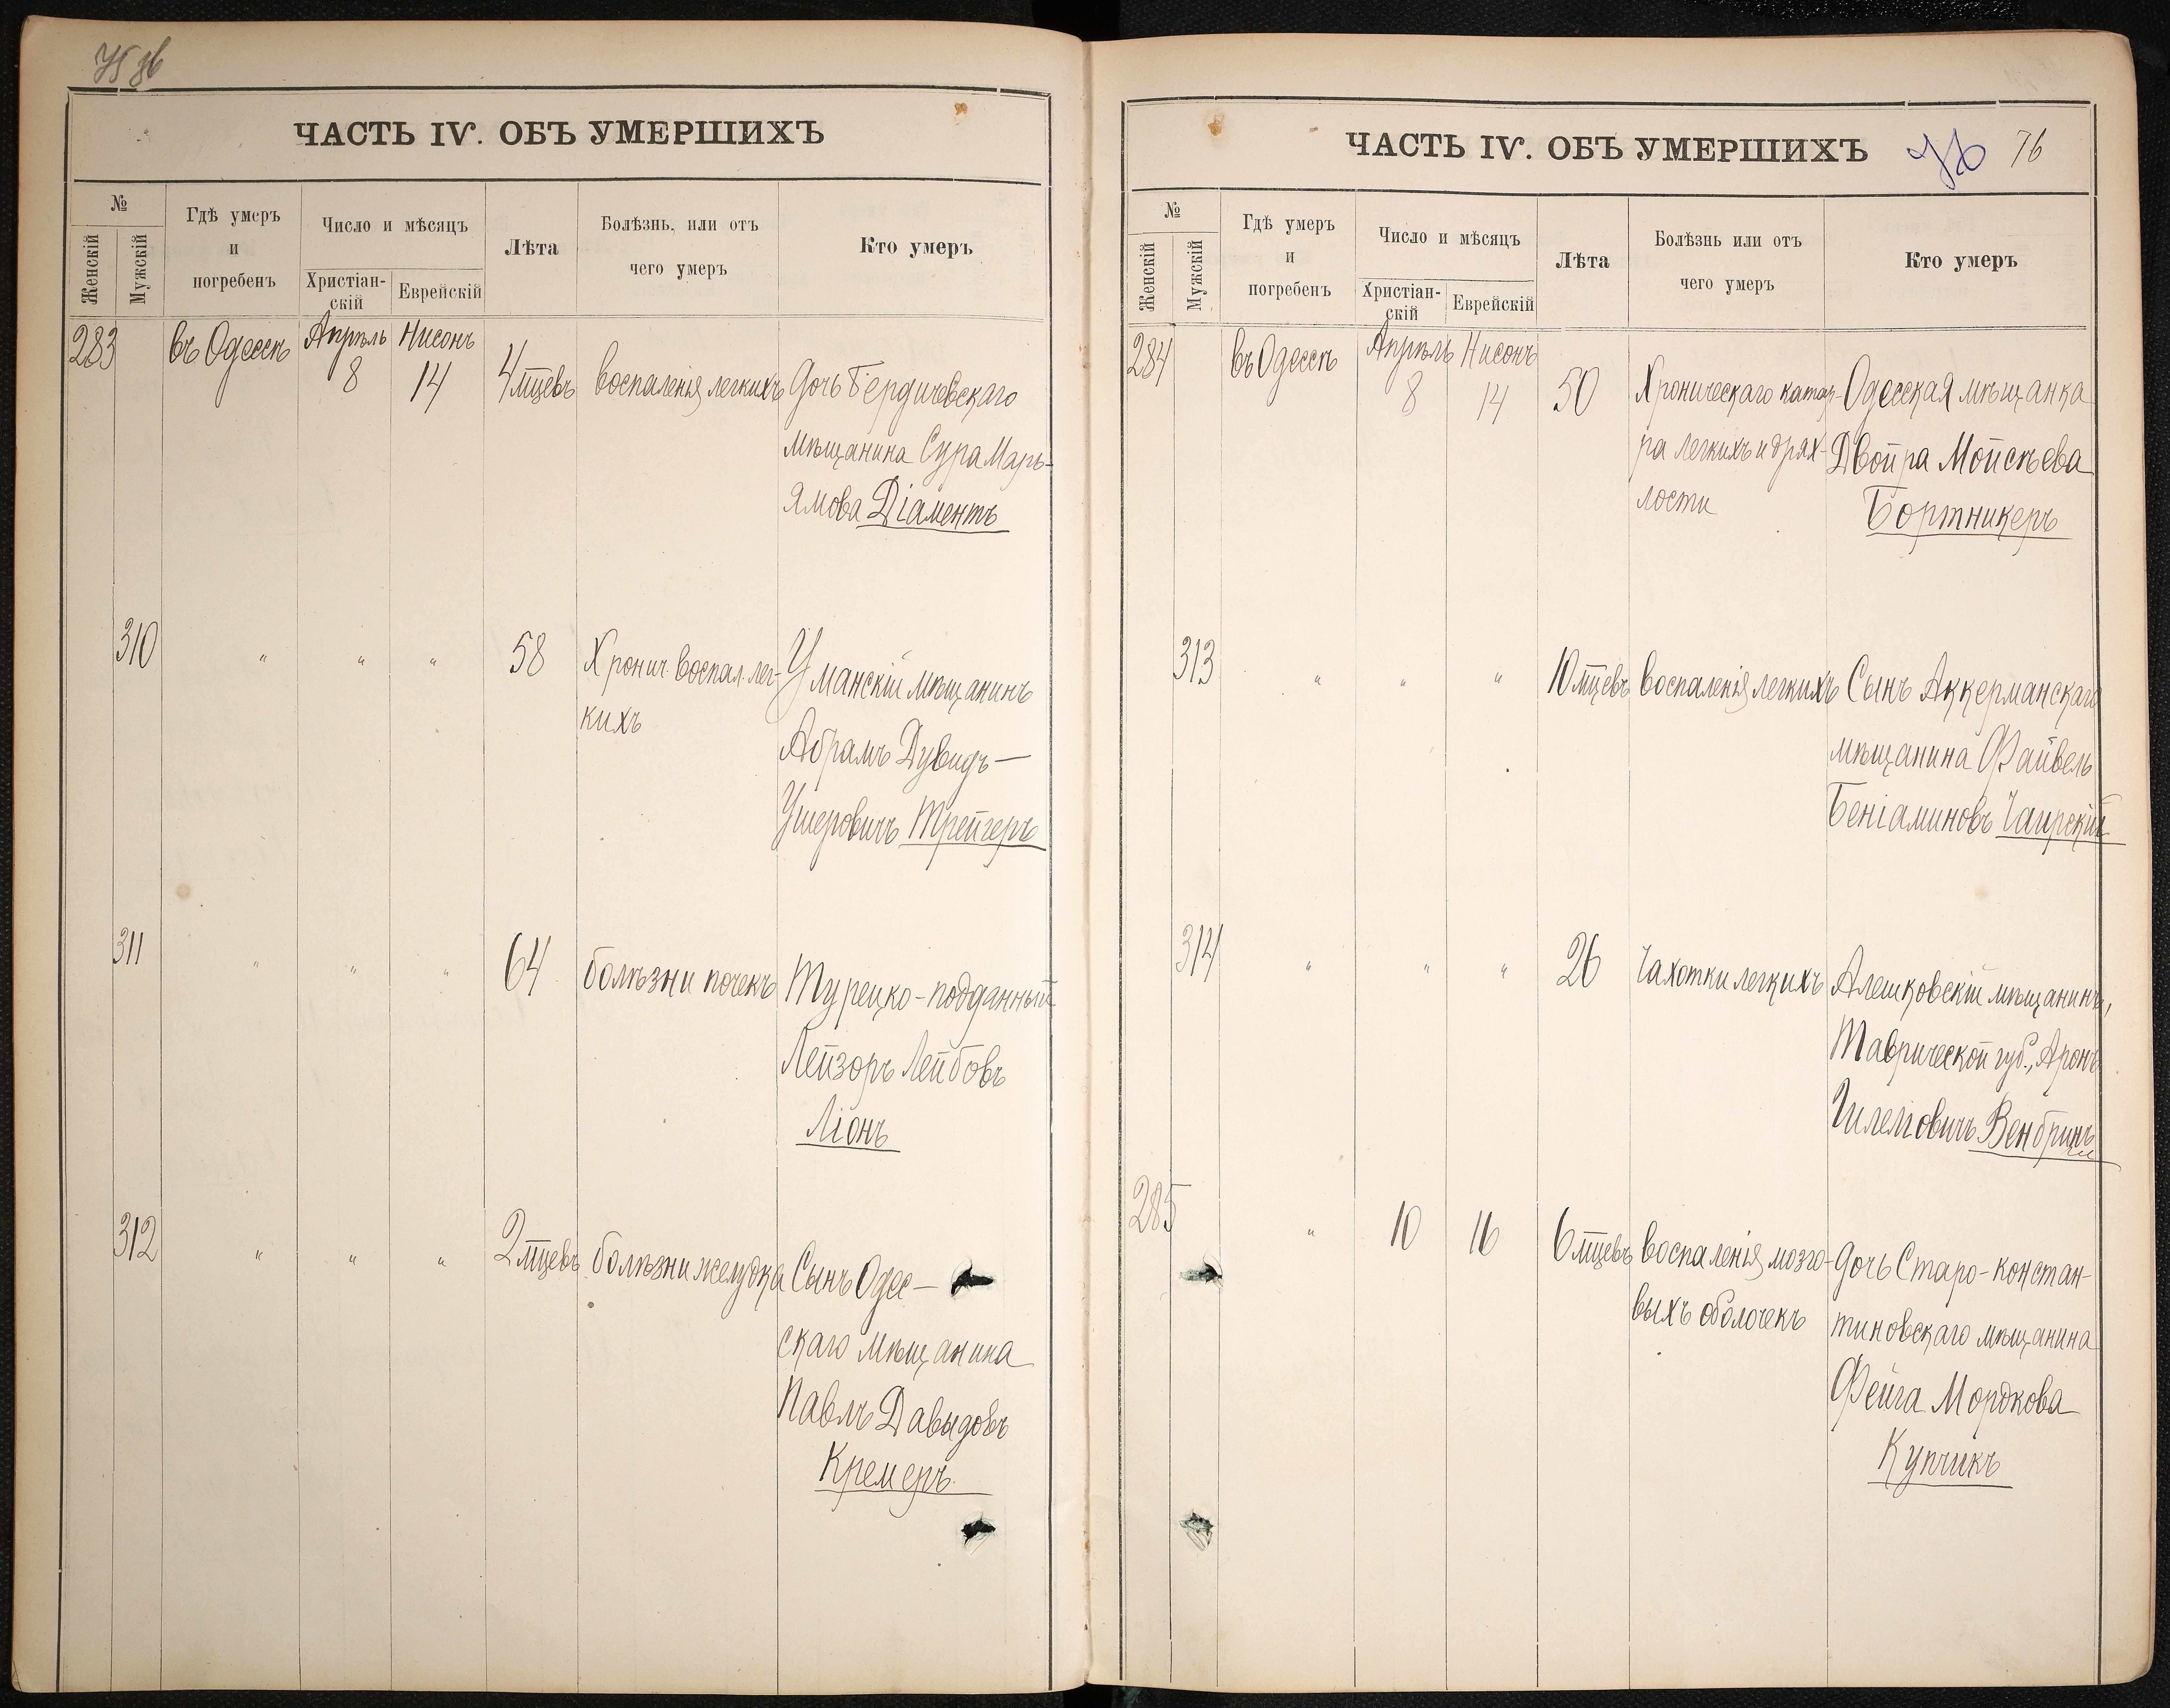 75 об
ЧАСТЬ IV. ОБЪ УМЕРШИХЪ
№
Женскій
Мужскій
Гдѣ умеръ
и
погребенъ
Число и мѣсяцъ
Христіан-
скій
Еврейскій
Лѣта
Болѣзнь, или отъ
чего умеръ
Кто умеръ
283 въ Одессѣ Апрѣль Нисонъ
8 14 4 мцевъ воспаленія легкихъ Дочь Бердичевскаго
мѣщанина Сура Марь-
ямова Діаментъ
310 " " " 58 Хронич. воспал. лег- Уманскій мѣщанинъ
кихъ
Абрамъ Дувидъ —
Ушеровичъ Трейгеръ
311 " " " 64 болѣзни почекъ Турецко-подданный
Лейзоръ Лейбовъ
Ліонъ
312 " " " 2 мцевъ болѣзни желудка Сынъ Одес-
скаго мѣщанина
Павлъ Давыдовъ
Кремеръ.
ЧАСТЬ IV. ОБЪ УМЕРШИХЪ 76 76
№
Женскій
Мужскій
Гдѣ умеръ
и
погребенъ
Число и мѣсяцъ
Христіан-
скій
Еврейскій
Лѣта
Болѣзнь или отъ
чего умеръ
Кто умеръ
284 въ Одессѣ Апрѣль Нисонъ
8 14 50 Хроническаго катар- Одесская мѣщанка
ра легкихъ и дрях- Двойра Мойсѣева
лости Бортникеръ
313 " " " 10 мцевъ воспаленія легкихъ Сынъ Аккерманскаго
мѣщанина Файвель
Беніаминовъ Чаирскій
314 " " " 26 Чахотки легкихъ Алешковскій мѣщанинъ,
Таврической губ., Аронъ
Шлемовичъ
285 " 10 16 6 мцевъ воспаленія мозго- Дочь Старо-констан-
выхъ оболочекъ тиновскаго мѣщанина
Фейга Мордкова
Купчикъ